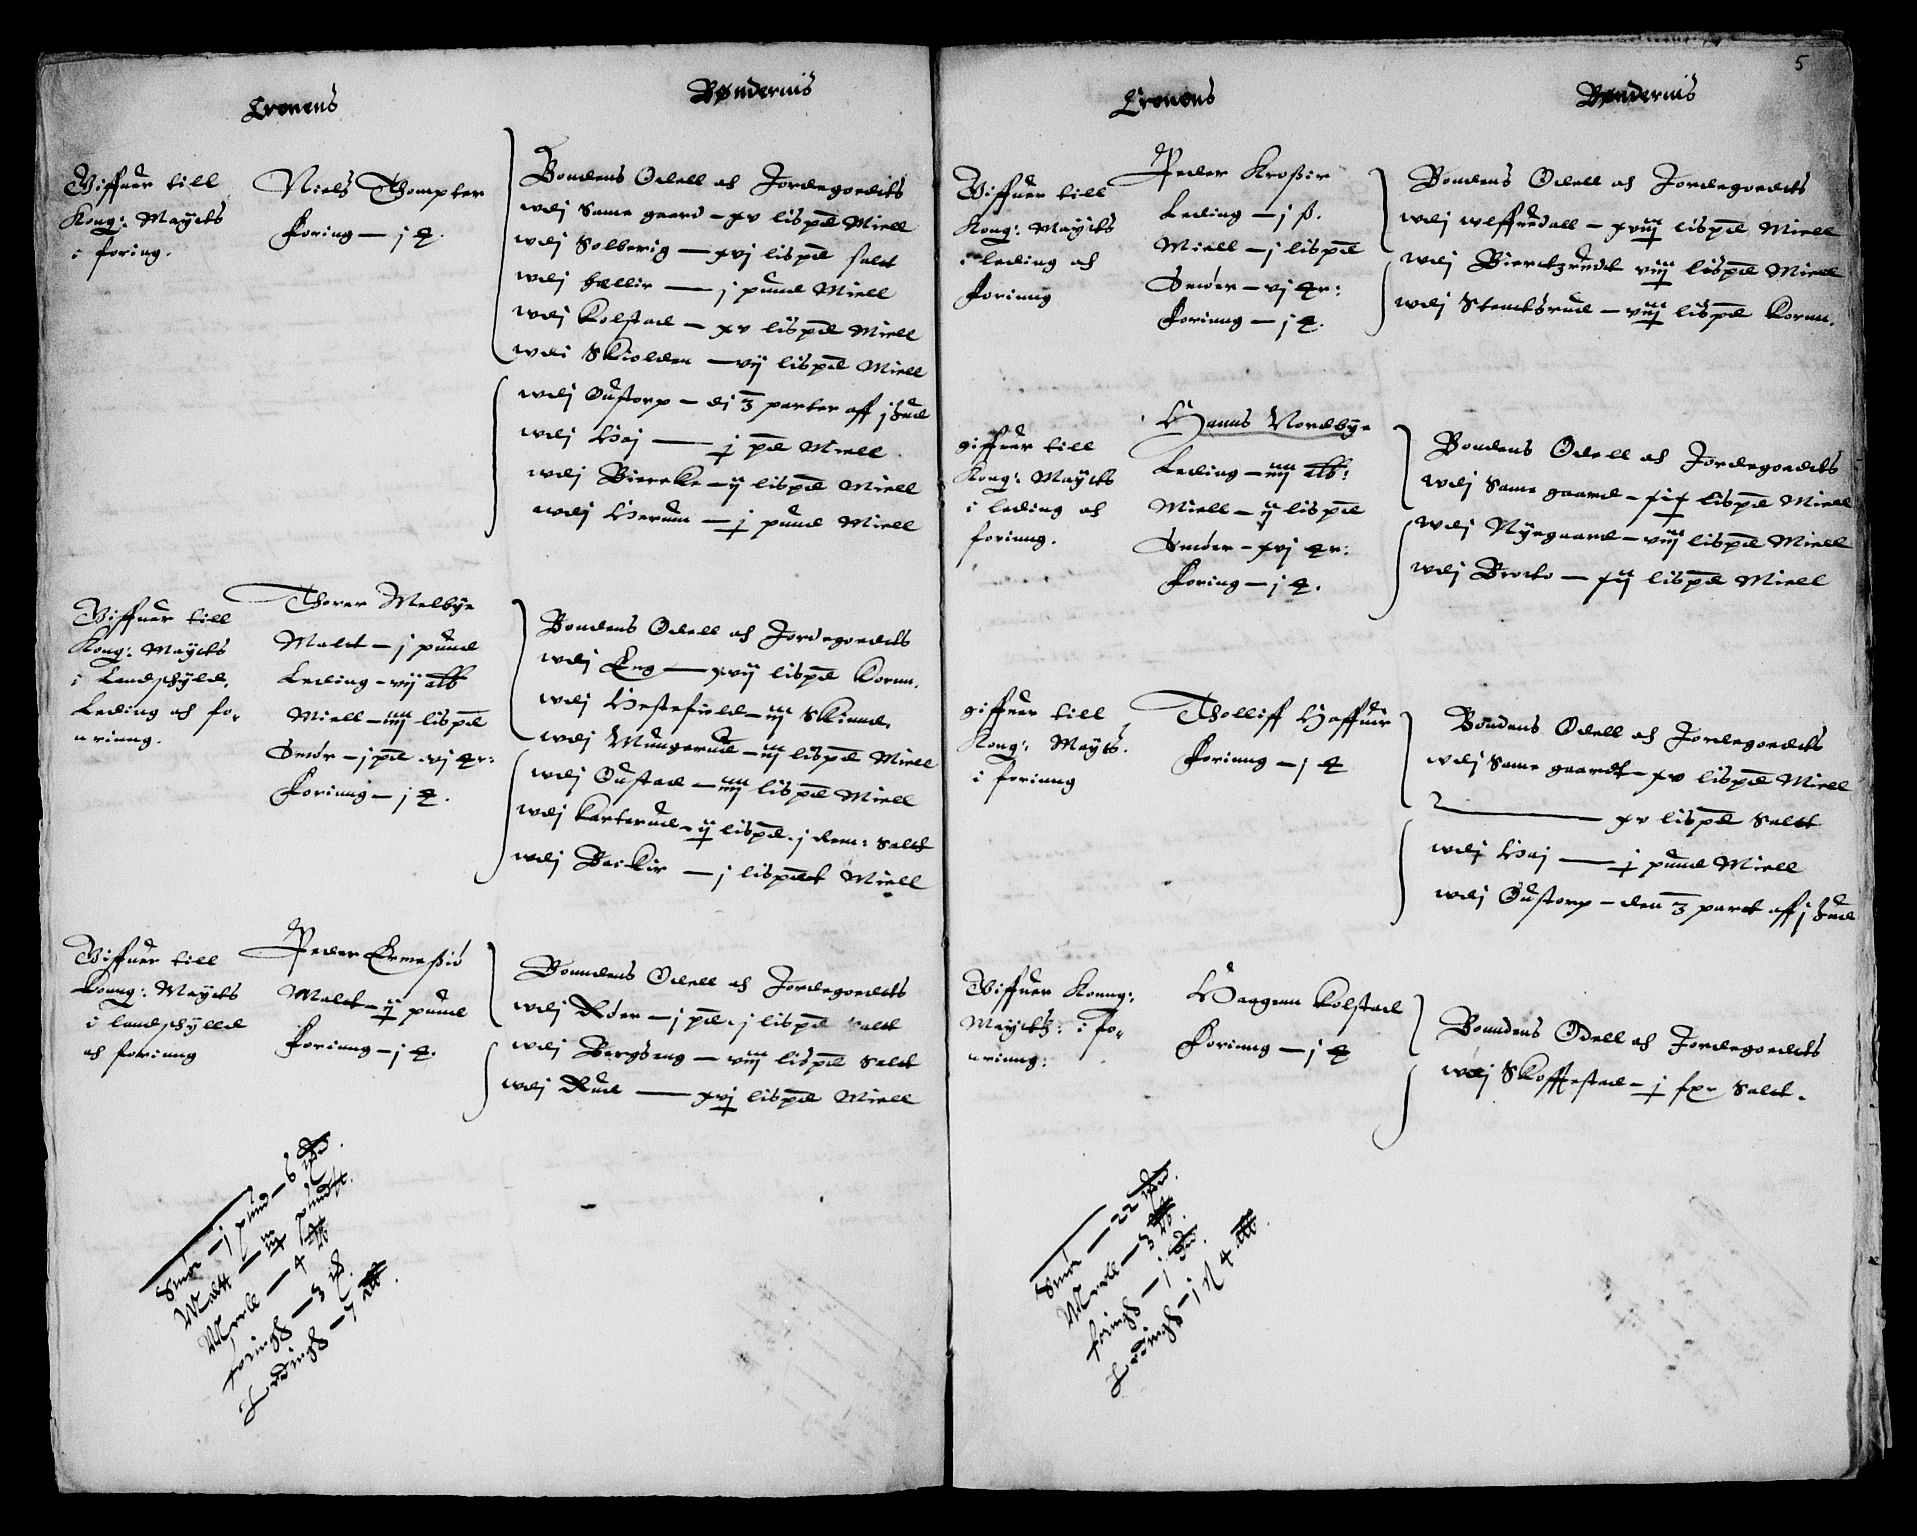 Cronens
Bøndernis
Giffuer till
Kong: Maÿets
i foring.
Niels Thompter
Foring — j
Bondens Odell och Jordegoedts
wdj Same gaard — xv lispd Miell
wdj Solberig — xvj lispd salt
wdj Hellir — j pund Miell
wdj Kolstad — xv lispd Miell
wdi Skiolden — vij lispd Miell
wdj Oustorp — dj 3 parter aff j hud
wdj Haj — j pd Miell
wdj Biercke — ij lispd Miell
wdj Herum — j pund Miell
Giffuer till
Kong: Maÿets
i Landschyld,
Leding och fo-
uriung.
Thorer Melbye
Malt — j pund
Leding — vij alb
Miell — iiij lispd
Smør — j pd vj
Foriung — j
Bondens Odell och Jordegoedts
wdj Eeg — xvij lispd Kornn.
wdj Hestefield — iij Skinnd
wdj Mungerud — iij lispd Miell
wdj Oustad — iiij lispd Miell
wdj Karterud — ij lispd. j Salt
wdj Backir — j lispdt Miell
Giffuer till
Konng: Maÿets
i landschylld
och foriung
Peder Ermeßiø
Malt — ij pund
Foriung — j
Bonndens Odell och Jordegoedts
wdj Røer — j pd. j lispd Salt
wdj Bergseng — viij lispd Salt
wdj Rud — xvj lispd Miell
Smør — j pund — 6
Malt — iij pundt.
Meell — 4
foringh — 3
Ledingh — 7 alb.
5
Cronens
Bøndernis
Giffuer till
Kong: Maÿets
i leding och
foriung
Peder Kroßir
Leding — j ß.
Miell — j lispd
Smøer — vj
Foriung — j
Bondens Odell och Jordegoedts
wdj wlffuedall — xviij lispd Miell
wdj Bierckzrudt viij lispd Miell
wdj Stencksrud — viij lispd Kornn.
giffuer till
Kong: Maÿets
i leding och
foriung.
Hanns Nordbye
Leding — iiij alb:
Miell — ij lispd
Smøer — xvj
Foring — j
Bondens Odell och Jordegoedts
wdj Same gaard — xix lispd Miell
wdj Nyegaard — viij lispd Miell
wdj — xij lispd Miell
giffuer till
Kong: Maÿts.
i foriung
Tholliff Haffuer
Foriung — j
Bondens Odell och Jordegoedts
wdj Same gaardt — xv lispd Miell
— xv lispd Salt
wdj Haj — j pund Miell
wdj Oustorp — den 3 part aff j hud
Giffuer Konng:
Maÿetz: i fo-
uriung:
Haagenn Kolstad
Foriung — j
Bonndens Odell och Jordegoedts
wdj Skofftestad — j Salt.
Smør — 22
Meell — 3
foringh — j
Ledingh — j 4 alb.